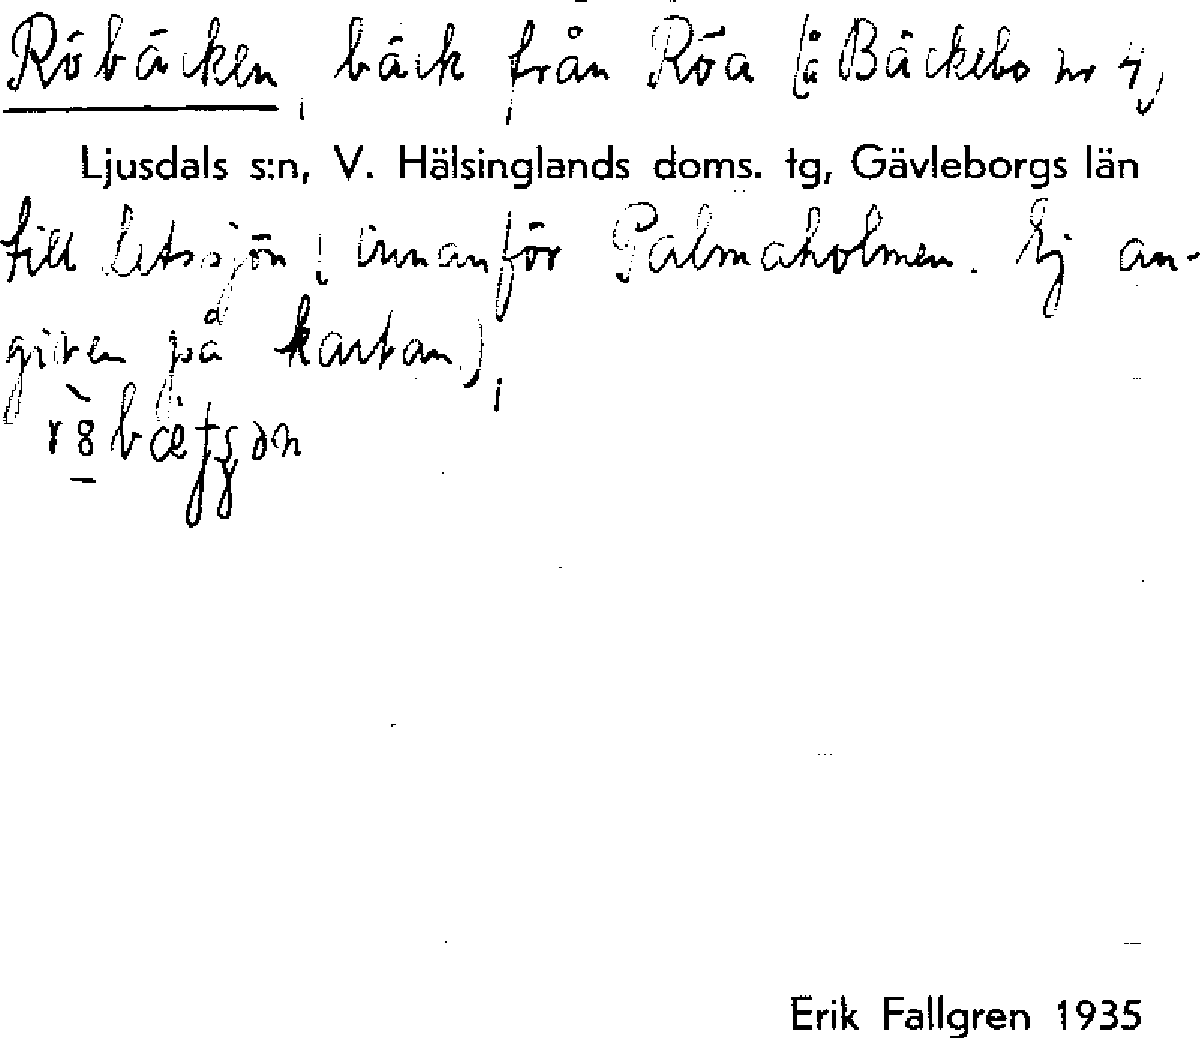 Röbäcken, bäck från Röa (å Bäckebo nr 4,
Ljusdals s:n, V. Hälsinglands doms. tg, Gävleborgs län
till Letssjön; innanför Palmaholmen. Ej an-
given på kartan.),
Erik Fallgren 1935